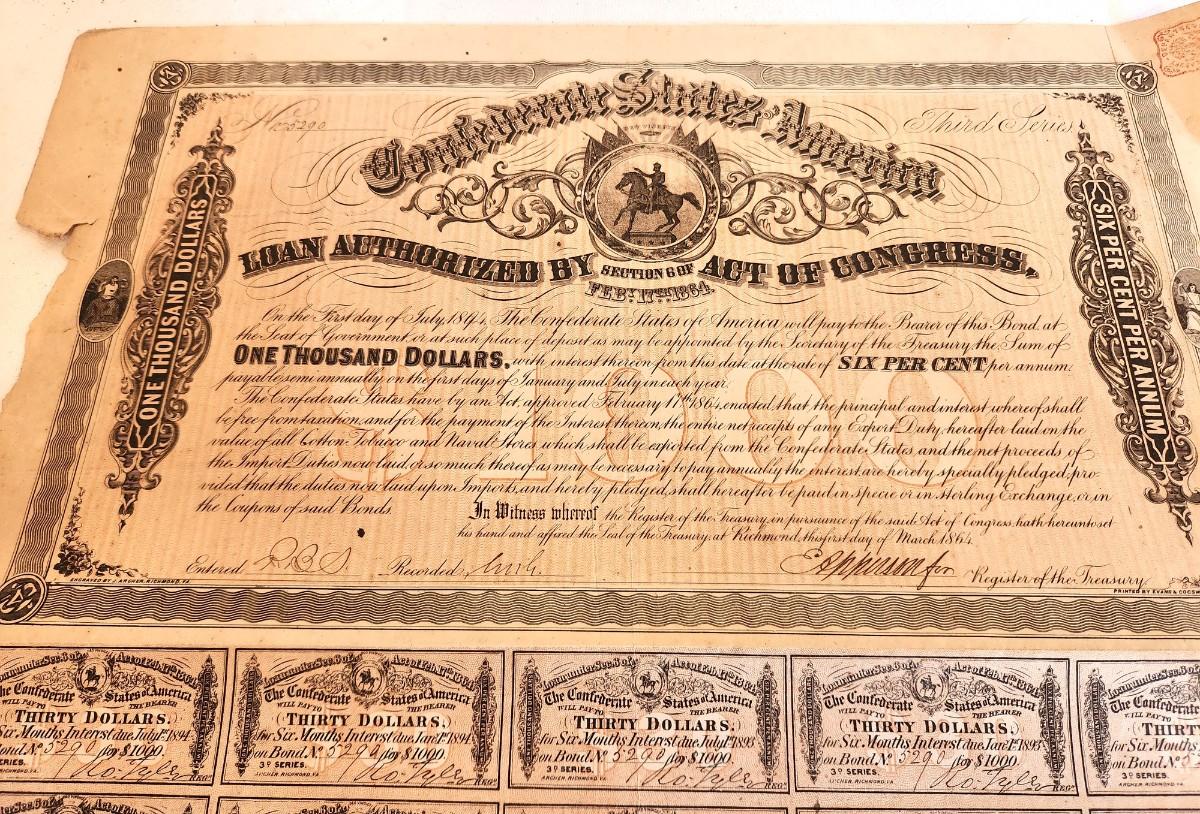 No 5290
Third Series
Confederate States of America
LOAN AUTHORIZED BY SECTION 6 OF ACT OF CONGRESS,
FEBY. 17TH 1864.
ONE THOUSAND DOLLARS
SIX PER CENT PER ANNUM
On the First day of July, 1894, The Confederate States of America, will pay to the Bearer of this Bond, at
the Seat of Government, or at such place of deposit as may be appointed by the Secretary of the Treasury, the Sum of
ONE THOUSAND DOLLARS, with interest thereon from this date at the rate of SIX PER CENT per annum.
payable semi annually on the first days of January and July in each year.
The Confederate States have by an Act, approved February 17th 1864, enacted, that the principal and interest whereof shall
be free from taxation, and for the payment of the Interest thereon, the entire net receipts of any Export Duty, hereafter laid on the
value of all Cotton Tobacco and Naval Stores which shall be exported from the Confederate States and the net proceeds of
the Import Duties now laid, or so much thereof as may be necessary to pay annually the interest are hereby specially pledged; pro-
vided that the duties now laid upon Imports, and hereby pledged, shall hereafter be paid in specie or in Sterling Exchange, or in
the Coupons of said Bonds.
In Witness whereof the Register of the Treasury, in pursuance of the said Act of Congress, hath hereunto set
his hand and affixed the Seal of the Treasury, at Richmond, this first day of March 1864
Entered
Recorded,
Register of the Treasury
ENGRAVED BY J. ARCHER, RICHMOND, VA.
PRINTED BY EVANS & COGSW
$1000
Loan under Sec. 6 of Act of Feb. 17th 1864
The Confederate States of America
WILL PAY TO THE BEARER
THIRTY DOLLARS,
for Six Months Interest due July 1st 1894
on Bond No 5290 for $1000.
3D SERIES.
Ro. Tyler REGR
Loan under Sec. 6 of Act of Feb. 17th 1864
The Confederate States of America
WILL PAY TO THE BEARER
THIRTY DOLLARS,
for Six Months Interest due Jany 1st 1894
on Bond No 5290 for $1000.
3D SERIES.
ARCHER, RICHMOND, VA.
Ro. Tyler REGR
Loan under Sec. 6 of Act of Feb. 17th 1864
The Confederate States of America
WILL PAY TO THE BEARER
THIRTY DOLLARS,
for Six Months Interest due July 1st 1893
on Bond No 5290 for $1000.
3D SERIES.
ARCHER, RICHMOND, VA.
Ro. Tyler REGR
Loan under Sec. 6 of Act of Feb. 17th 1864
The Confederate States of America
WILL PAY TO THE BEARER
THIRTY DOLLARS,
for Six Months Interest due Jany 1st 1893
on Bond No 5290 for $1000.
3D SERIES.
ARCHER, RICHMOND, VA.
Ro. Tyler REGR
Loan under Sec. 6 of
The Confederate
WILL PAY TO
THIRT
for Six Months
on Bond, No 52
3D SERIES.
ARCHER, RICHMOND, VA.